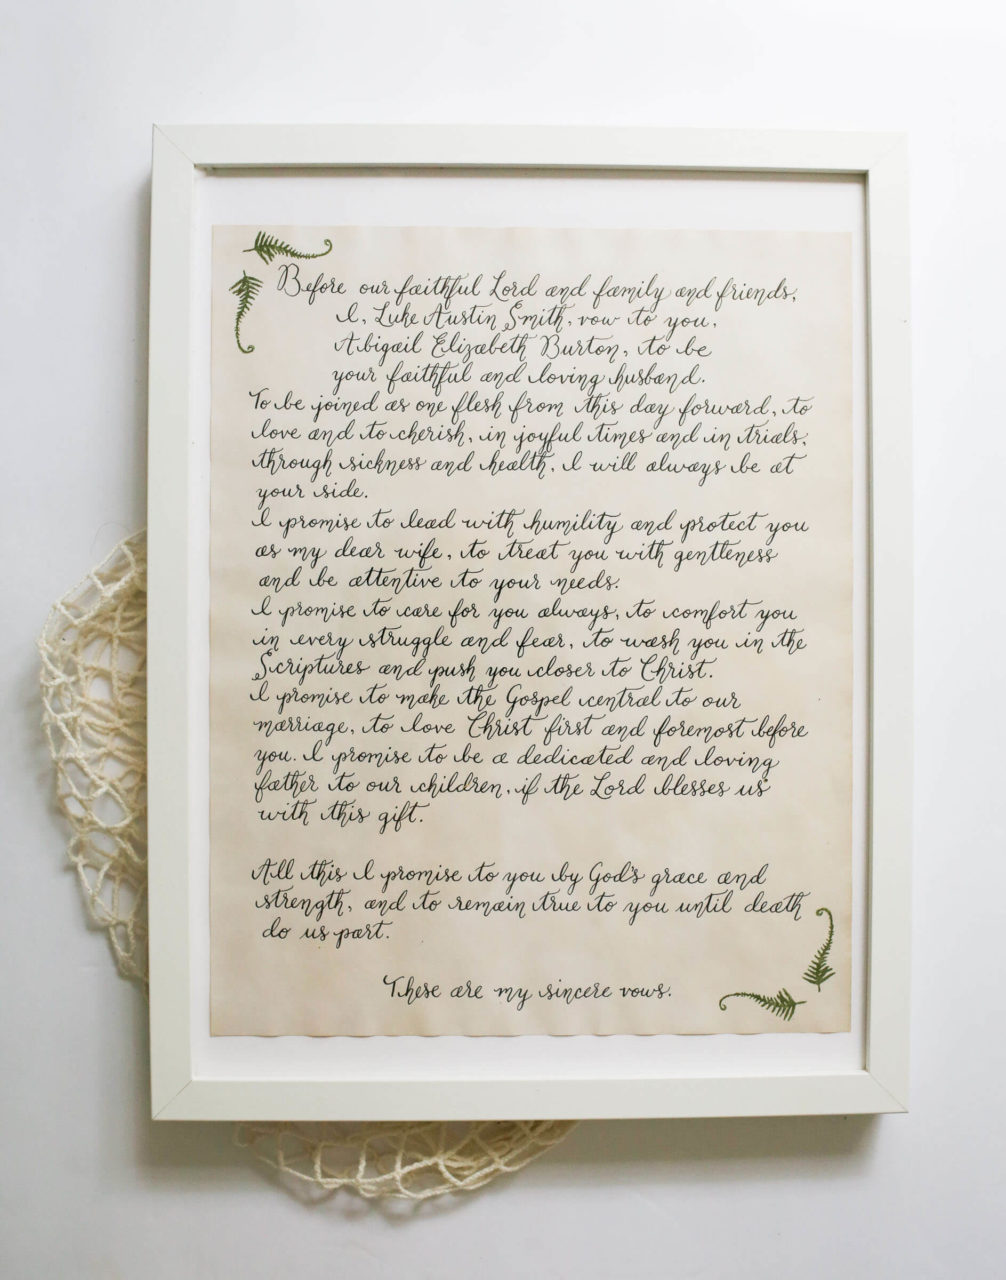 Before our faithful Lord and family and friends,
I, Luke Austin Smith, vow to you,
Abigail Elizabeth Burton, to be
your faithful and loving husband.
To be joined as one flesh from this day forward, to
love and to cherish, in joyful times and in trials,
through sickness and health, I will always be at
your side.
I promise to lead with humility and protect you
as my dear wife, to treat you with gentleness
and be attentive to your needs.
I promise to care for you always, to comfort you
in every struggle and fear, to wash you in the
Scriptures and push you closer to Christ.
I promise to make the Gospel central to our
marriage, to love Christ first and foremost before
you. I promise to be a dedicated and loving
father to our children, if the Lord blesses us
with this gift.
All this I promise to you by God's grace and
strength, and to remain true to you until death
do us part.
These are my sincere vows.